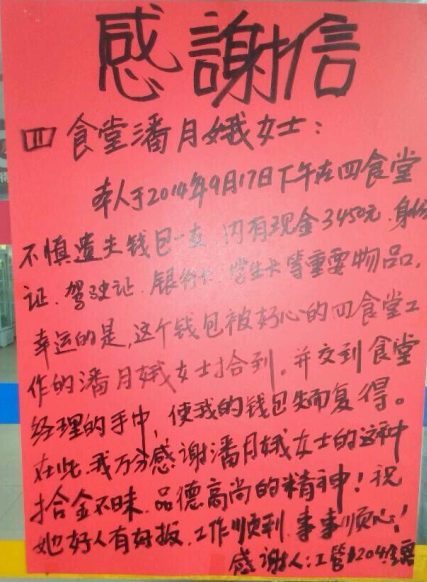 感謝信
四食堂潘月娥女士：
本人于2014年9月17日下午在四食堂
不慎遗失钱包一支，内有现金3450元、身份
证、驾驶证、银行卡、学生卡等重要物品，
幸运的是，这个钱包被好心的四食堂工
作的潘月娥女士拾到。并交到食堂
经理的手中，使我的钱包失而复得。
在此，我万分感谢潘月娥女士的这种
拾金不昧、品德高尚的精神！祝
她好人有好报、工作顺利、事事顺心！
感谢人：工管1204